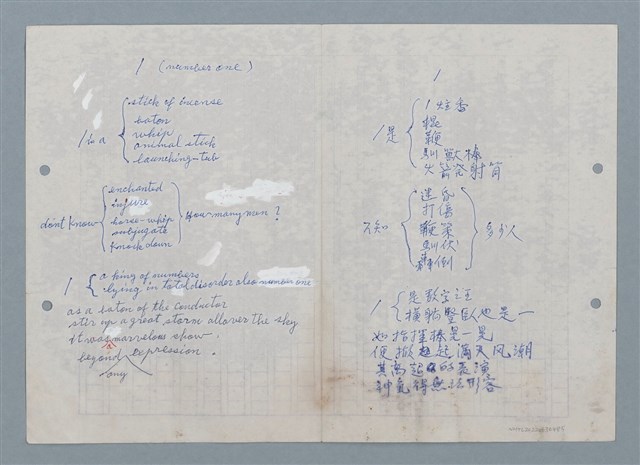 1 (number one)
1 is a
stick of incense
baton
whip
animal stick
launching-tub
don't know
enchanted
injure
horse-whip
subjugate
knock down
how many men ?
1
a king of numbers
lying in total disorder also number one
as a baton of the conductor
stir up a great storm all over the sky
it was marvelous show
beyond expression .
any
1
1是
1炷香
棍
鞭
馴獸棒
火箭發射筒
不知
迷昏
打傷
鞭策
馴伏
轟倒
多少人
1
是數字之王
橫躺豎臥也是一
如指揮棒是一晃
便掀起滿天风潮
其高超的表演
神氣得無法形容